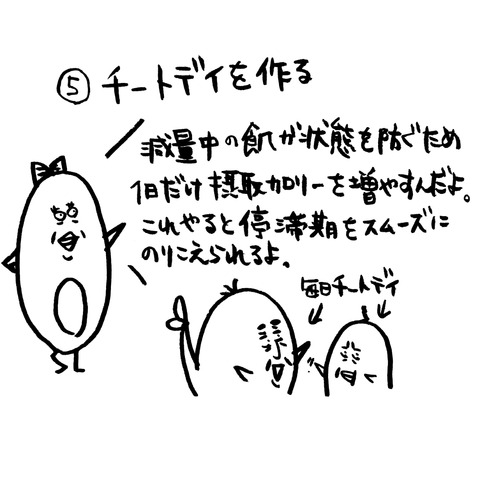 ⑤チートデイを作る
減量中の飢が状態を防ぐため
1日だけ摂取カロリーを増やすんだよ。
これやると停滞期をスムーズに
のりこえられるよ。
毎日チートデイ